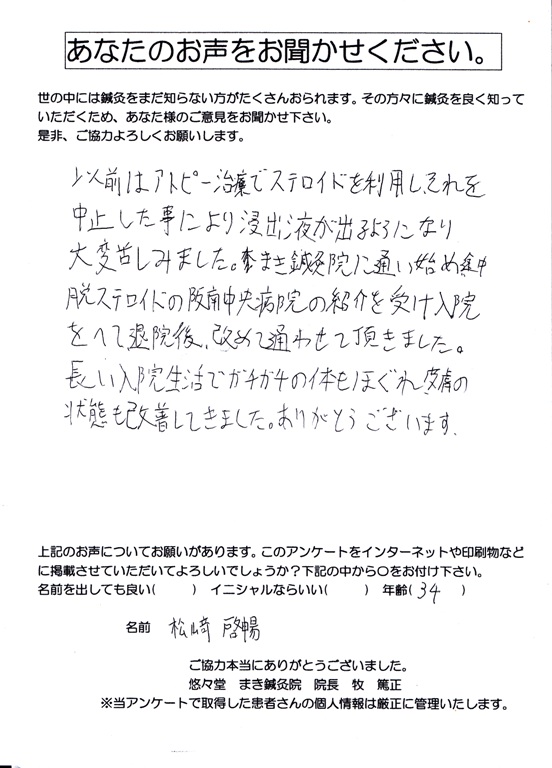 あなたのお声をお聞かせください。
世の中には鍼灸をまだ知らない方がたくさんおられます。その方々に鍼灸を良く知って
いただくため、あなた様のご意見をお聞かせ下さい。
是非、ご協力よろしくお願いします。
以前はアトピー治療でステロイドを利用し、それを
中止した事により浸出液が出るようになり
大変苦しみました。まき鍼灸院に通い始め途中
脱ステロイドの阪南中央病院の紹介を受け入院
をへて退院後、改めて通わせて頂きました。
長い入院生活でガチガチの体もほぐれ皮膚の
状態も改善してきました。ありがとうございます。
上記のお声についてお願いがあります。このアンケートをインターネットや印刷物など
に掲載させていただいてよろしいでしょうか?下記の中から〇をお付け下さい。
名前を出しても良い( ) イニシャルならいい( ) 年齢(34 )
名前 松崎 啓暢
ご協力本当にありがとうございました。
悠々堂 まき鍼灸院 院長 牧 篤正
※当アンケートで取得した患者さんの個人情報は厳正に管理いたします。